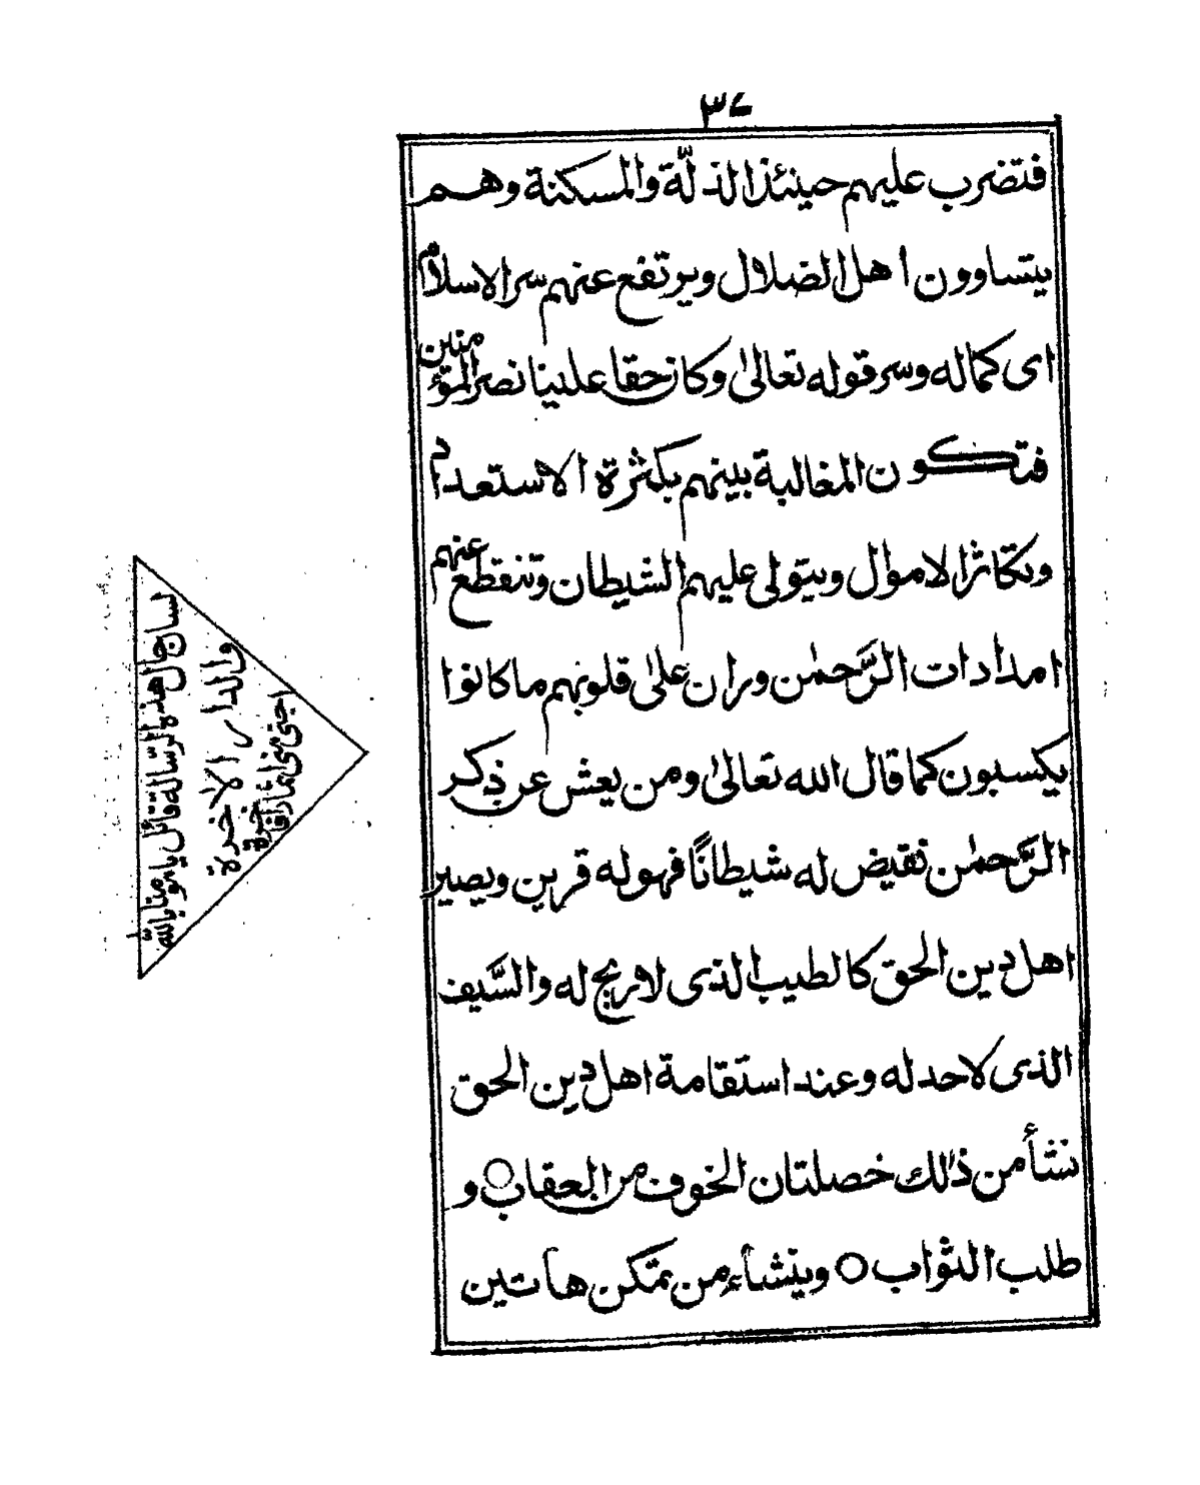 ٣٧
فتضرب عليهم حينئذ الذلّة والمسكنة وهم
يتساوون اهل الضلال ويرتفع عنهم سر الاسلام
اى كماله وسر قوله تعالىٰ وكان حقا علينا نصر المؤمنين
فتكون المغالبة بينهم بكثرة الاستعداد
وتكاثر الاموال ويتولى عليهم الشيطان وتنقطع عنهم
امدادات الرَّحمٰن وران علىٰ قلوبهم ما كانوا
يكسبون كما قال الله تعالىٰ ومن يعش عن ذكر
الرَّحمٰن نقيض له شيطانًا فهو له قرين ويصير
اهل دين الحق كالطيب الذى لا ريح له والسَّيف
الذى لا حد له وعند استقامة اهل دين الحق
تنشأ من ذٰلك خصلتان الخوف من العقاب ○ و
طلب الثواب ○ وينشاء من تمكن هاتين
لسان حال هذه الرسالة قائل يا
والدار الاخرة
اجتنى منى